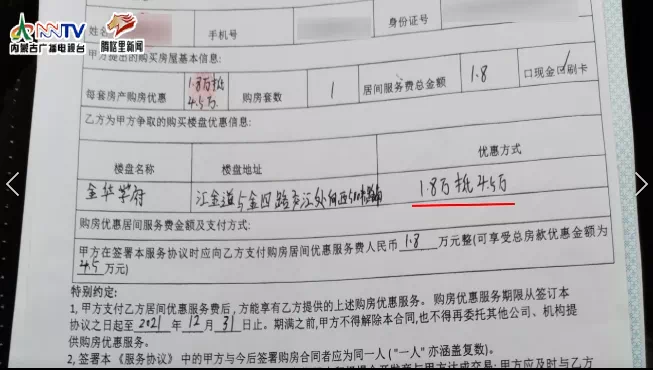 NMTV 内蒙古广播电视台 腾格里新闻
姓名 手机号 身份证号
甲方提出的购买房屋基本信息:
每套房产购房优惠 1.8万抵4.5万 购房套数 1 居间服务费总金额 1.8 口现金口刷卡
乙方为甲方争取的购买楼盘优惠信息:
楼盘名称 楼盘地址 优惠方式
金华学府 汇金道与金四路交汇处向西 1.8万抵4.5万
购房优惠居间服务费金额及支付方式:
甲方在签署本服务协议时应向乙方支付购房居间优惠服务费人民币 1.8 万元整(可享受总房款优惠金额为
4.5 万元)
特别约定:
1, 甲方支付乙方居间优惠服务费后, 方能享有乙方提供的上述购房优惠服务。 购房优惠服务期限从签订本
协议之日起至 2021 年 12 月 31 日止。期满之前, 甲方不得解除本合同,也不得再委托其他公司、机构提
供购房优惠服务。
2, 签署本《服务协议》中的甲方与今后签署购房合同者应为同一人 ( "一人" 亦涵盖复数)。